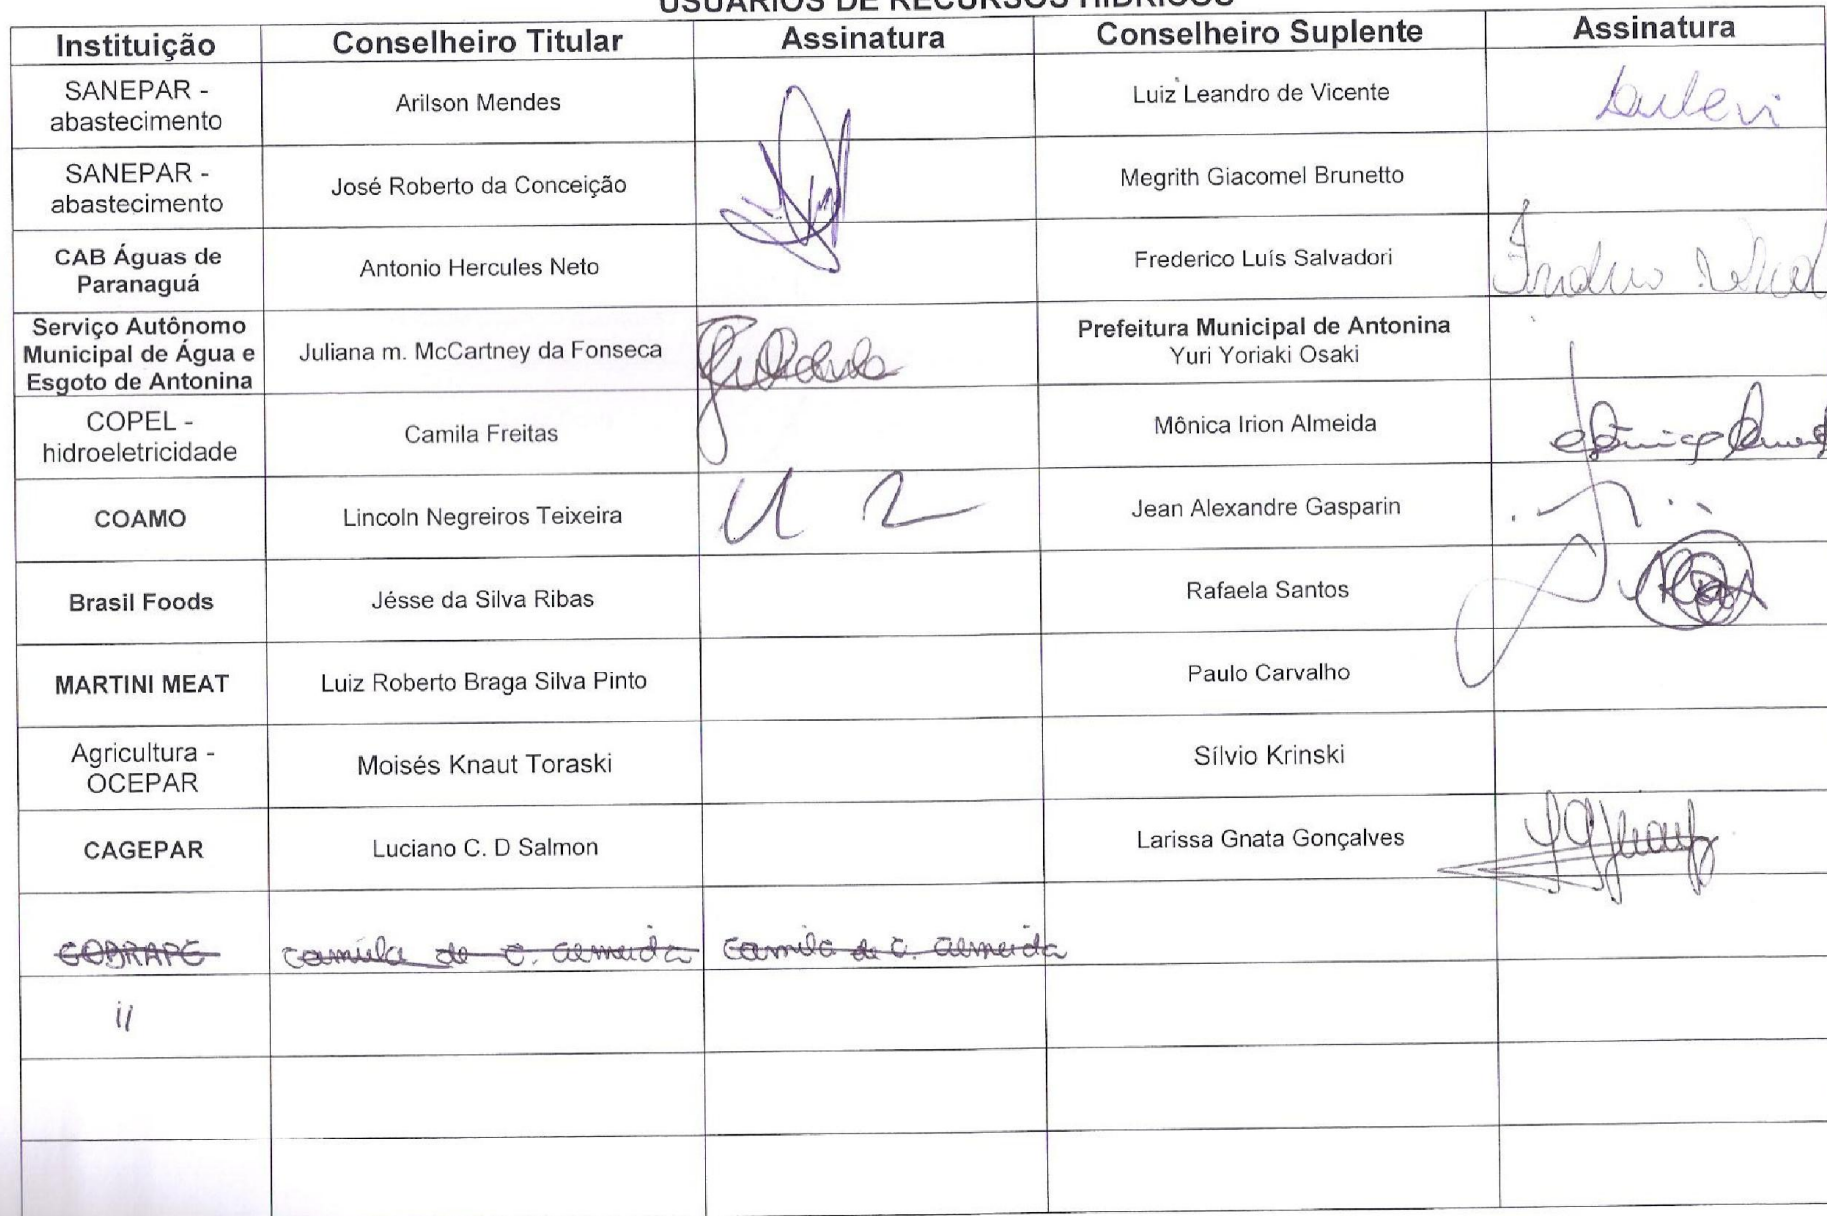 USUÁRIOS DE RECURSOS HÍDRICOS
Instituição Conselheiro Titular Assinatura Conselheiro Suplente Assinatura
SANEPAR -
abastecimento
Arilson Mendes
Luiz Leandro de Vicente
SANEPAR -
abastecimento
José Roberto da Conceição
Megrith Giacomel Brunetto
CAB Águas de
Paranaguá
Antonio Hercules Neto
Frederico Luís Salvadori
Serviço Autônomo
Municipal de Água e
Esgoto de Antonina
Juliana m. McCartney da Fonseca
Prefeitura Municipal de Antonina
Yuri Yoriaki Osaki
COPEL -
hidroeletricidade
Camila Freitas
Mônica Irion Almeida
COAMO
Lincoln Negreiros Teixeira
Jean Alexandre Gasparin
Brasil Foods
Jésse da Silva Ribas
Rafaela Santos
MARTINI MEAT
Luiz Roberto Braga Silva Pinto
Paulo Carvalho
Agricultura -
OCEPAR
Moisés Knaut Toraski
Sílvio Krinski
CAGEPAR
Luciano C. D Salmon
Larissa Gnata Gonçalves
COBRAPE camila de c. almeida camila de c. almeida